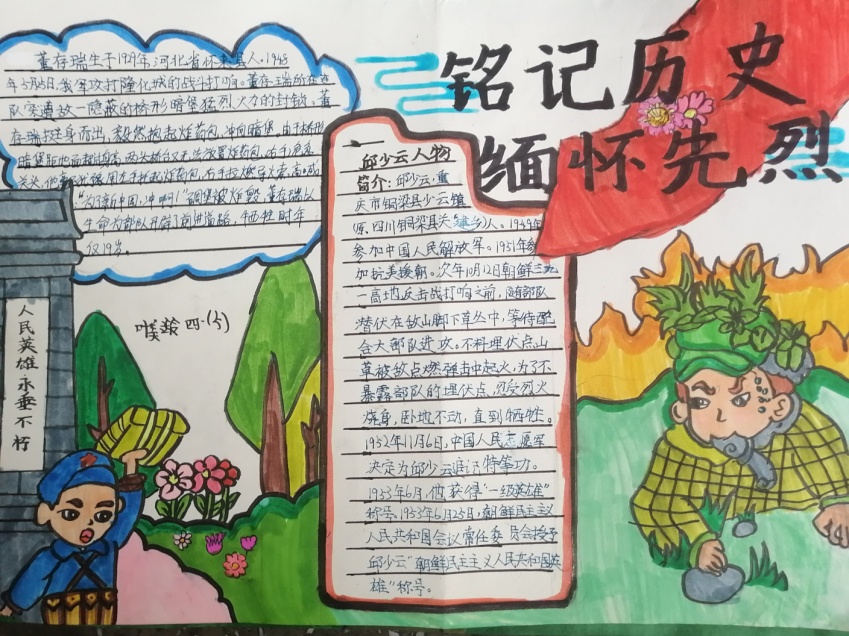 铭记历史
缅怀先烈
董存瑞生于1929年,河北省怀来县人。1948
年5月25日,我军攻打隆化城的战斗打响。董存瑞所在连
队突遭敌一隐蔽的桥形暗堡猛烈火力的封锁。董
存瑞挺身而出,毅然抱起炸药包,冲向暗堡,由于桥形
暗堡距地面超过身高,两头桥台又无法放置炸药包。在千钧危
关头,他毫不犹豫,用左手托起炸药包,右手拉燃导火索,高喊
“为了新中国,冲啊!”碉堡被炸毁,董存瑞以
生命为部队开辟了前进道路,牺牲时年
仅19岁。
邱少云人物
简介:邱少云,重
庆市铜梁县少云镇
(原四川铜梁县关溅乡)人。1949年
参加中国人民解放军。1951年参
加抗美援朝。次年10月12日朝鲜三九
一高地反击战打响之前,随部队
潜伏在敌山脚下草丛中,等待配
合大部队进攻。不料埋伏点山
草被敌点燃弹击中起火,为了不
暴露部队的埋伏点,忍受烈火
烧身,卧地不动,直到牺牲。
1952年11月6日,中国人民志愿军
决定为邱少云追记特等功。
1953年6月,他获得“一级英雄”
称号,1953年6月25日,朝鲜民主主义
人民共和国会议常任委员会授予
邱少云“朝鲜民主主义人民共和国英
雄”称号。
人民英雄永垂不朽
四·(6)